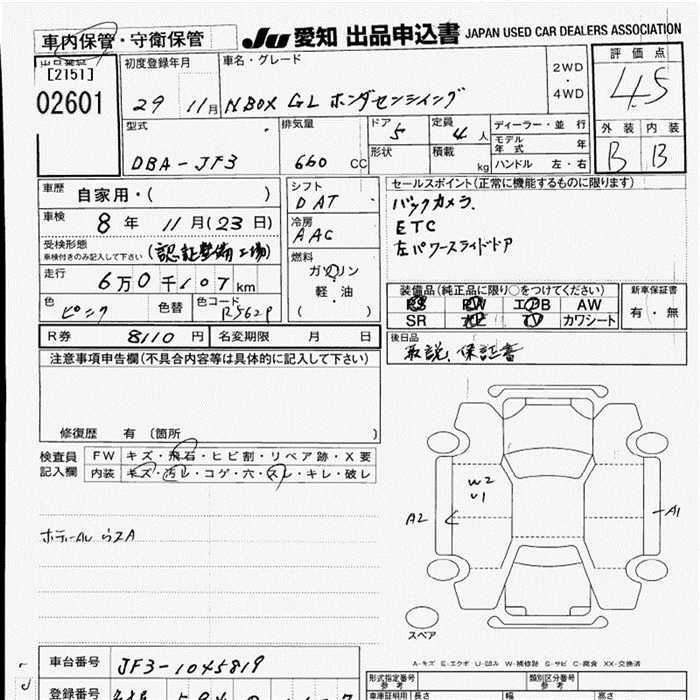 車内保管・守衛保管
JU 愛知 出品申込書 JAPAN USED CAR DEALERS ASSOCIATION
出品番号 [2151] 02601
初度登録年月 29 11月
車名・グレード NBOX GL ホンダセンシイング
2WD・4WD
評価点 4.5
外装 B 内装 B
型式 DBA-JF3
排気量 660 CC
ドア 5 定員 4人
形状 積載 kg
ディーラー・並行
モデル年式 年
ハンドル 左・右
車歴 自家用・( )
車検 8年 11月(23日)
受検形態 車検付きのみ記入して下さい (認証整備工場)
走行 6万0千107km
色 ピンク 色替 色コード R562P
シフト DAT
冷房 AAC
燃料 ガソリン 軽・油 ( )
セールスポイント(正常に機能するものに限ります)
バックカメラ、
ETC
左パワースライドドア
装備品(純正品に限り○をつけてください)
PS PW エアB AW
SR ナビ TV カワシート
新車保証書 有・無
後日品 取説、保証書
R券 8110円 名変期限 月 日
注意事項申告欄(不具合内容等は具体的に記入して下さい)
修復歴 有 〔箇所 〕
検査員記入欄
FW キズ・飛石・ヒビ割・リペア跡・X要
内装 キズ・汚レ・コゲ・穴・スレ・キレ・破レ
ボディーAL ウスA
W2
U1
A2
A1
スペア
A-キズ E-エクボ U-凹み W-補修跡 S-サビ C-腐食 XX-交換済
車台番号 JF3-1045819
登録番号
形式指定番号 参考
類別区分番号 参考
車庫証明用 参考 長さ 幅 高さ